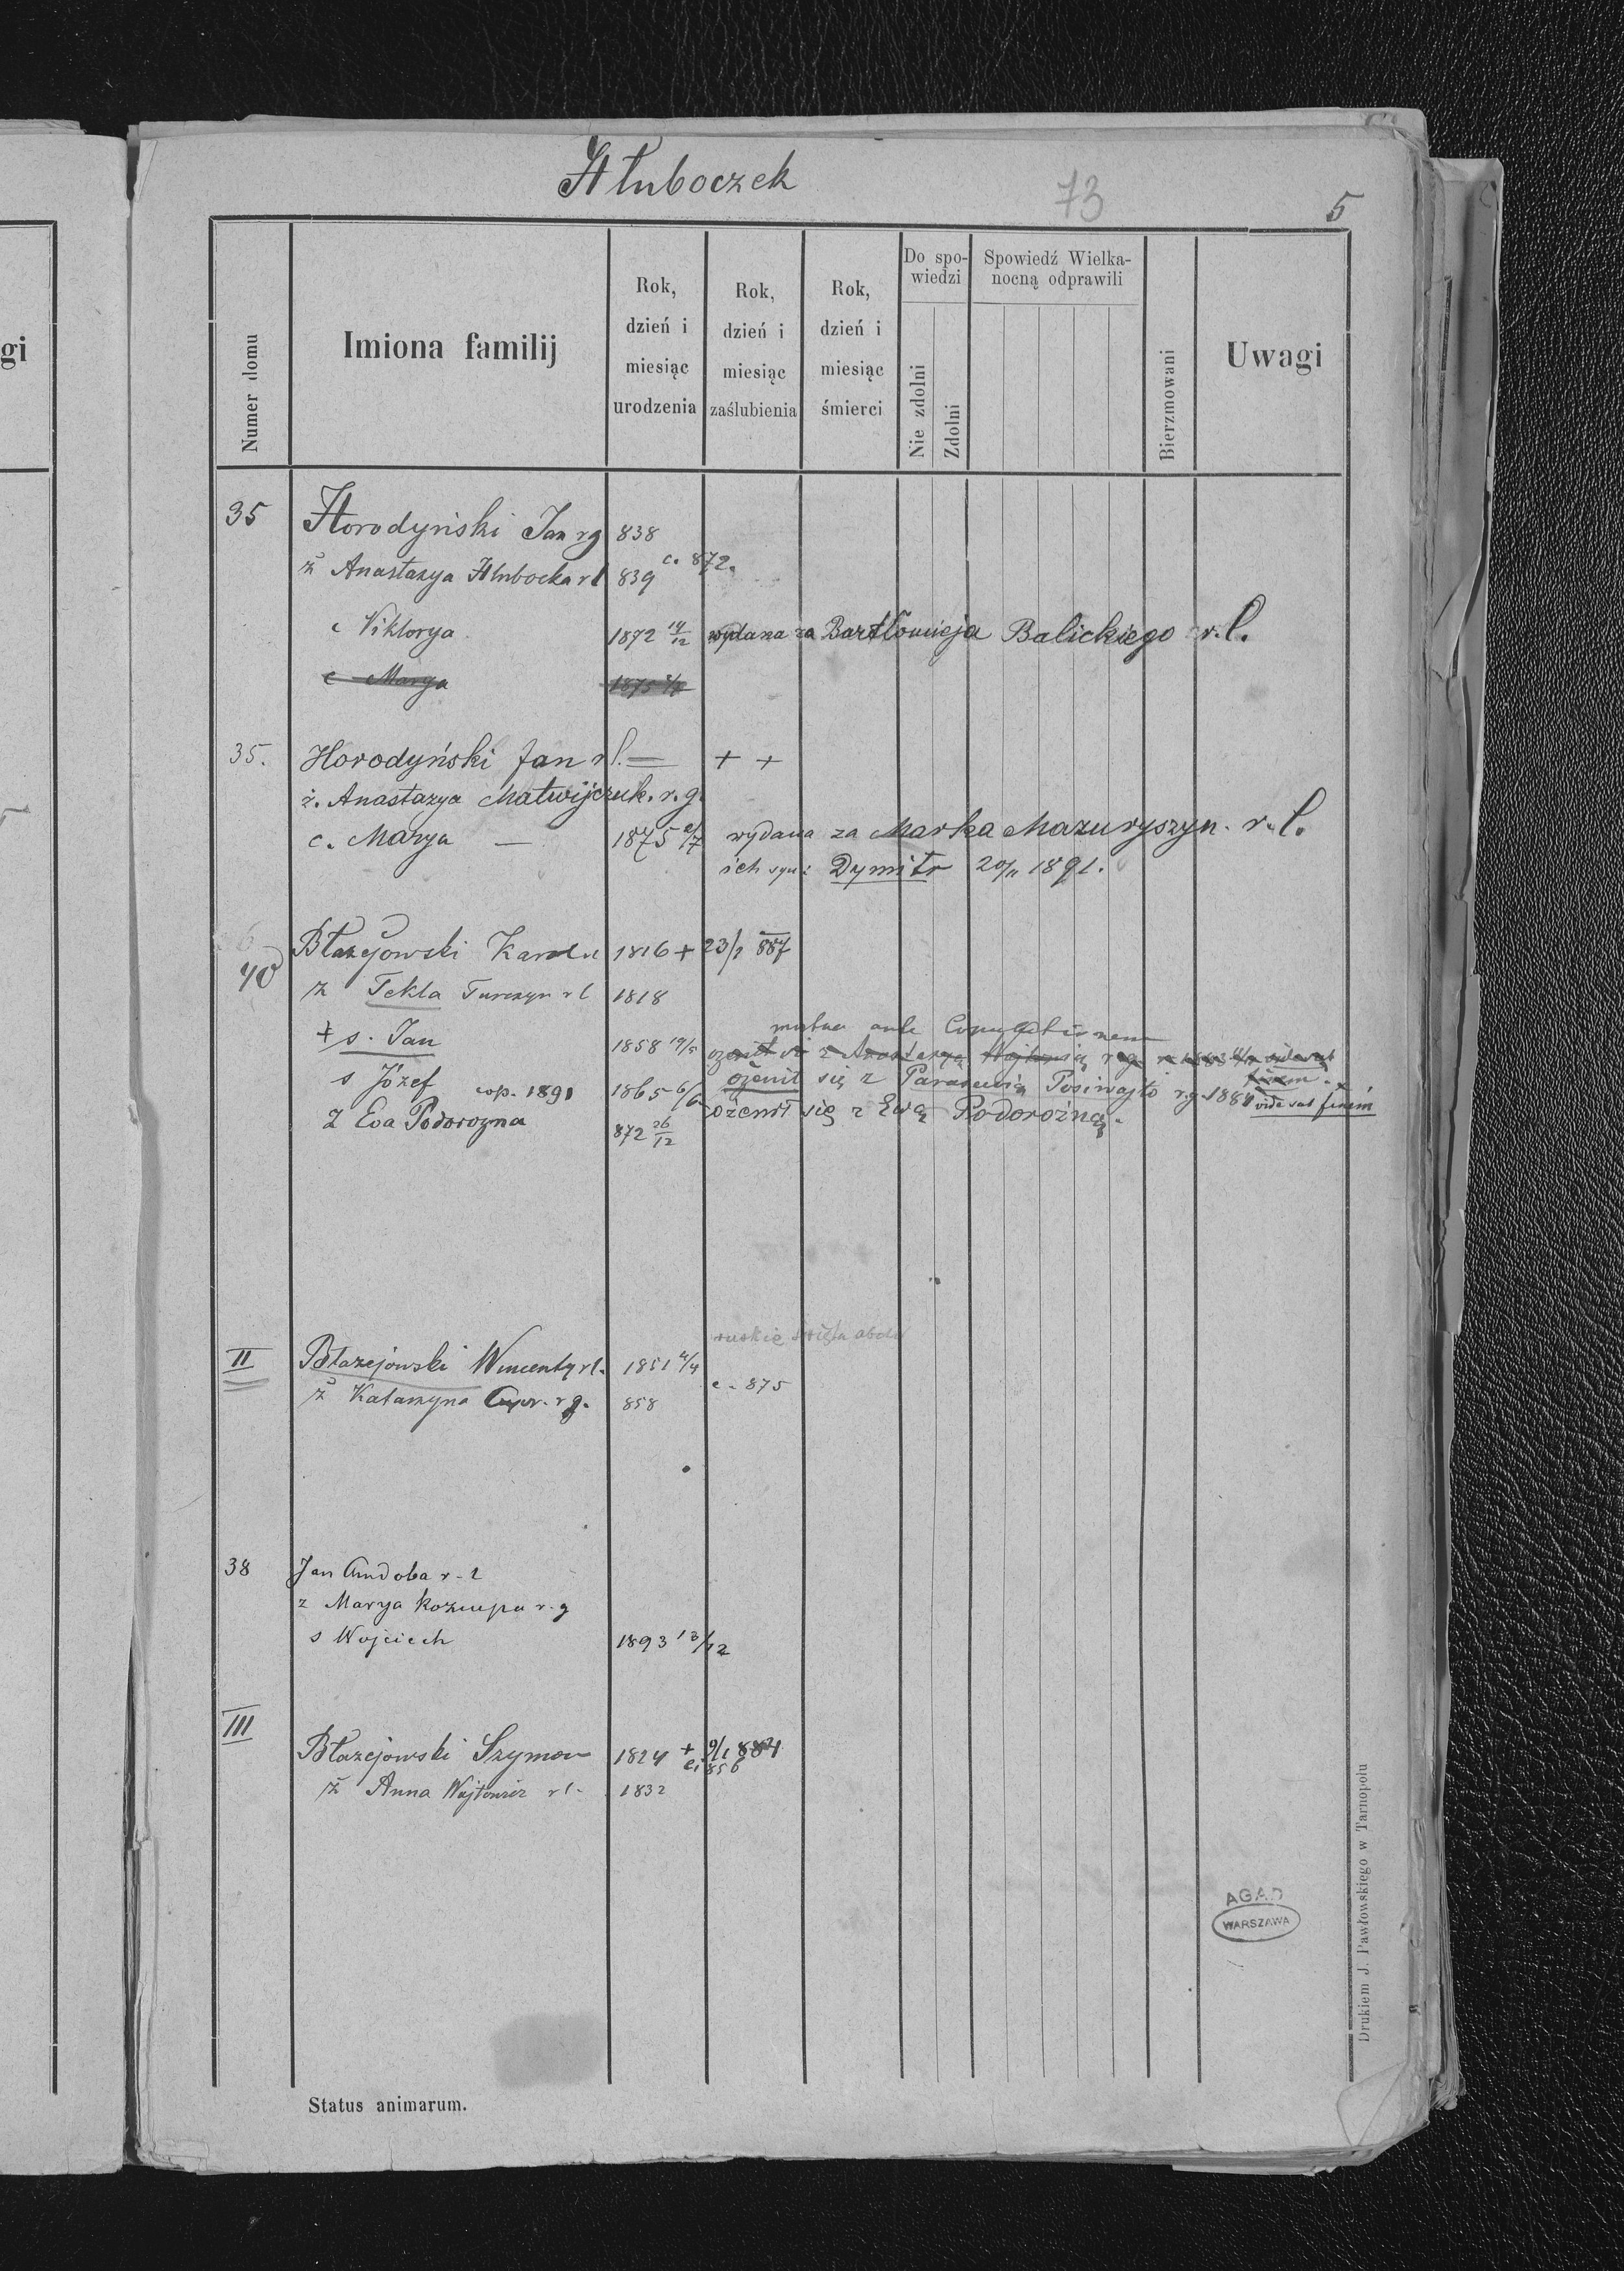 Hłuboczek
73
5
gi
Numer domu
Imiona familij
Rok, dzień i miesiąc urodzenia
Rok, dzień i miesiąc zaślubienia
Rok, dzień i miesiąc śmierci
Do spo-
wiedzi
Nie zdolni
Zdolni
Spowiedź Wielka-
nocną odprawili
Bierzmowani
Uwagi
35 Horodyński Jan rg 838
ż Anastazya Hłubocka rl 839 c. 872.
c Viktorya 1872 14/12 wydana za Bartłomieja Balickiego r.l.
c Marya 1875
35. Horodyński Jan rl. — + +
ż. Anastazya Matwijczuk. r. g.
c. Marya — 1875 2/7 wydana za Marka Mazuryszyn. r. l.
ich syn: Dymitr 20/11 1891.
40 Błażejowski Karol rl 1816 + 23/1 887
ż Tekla Turczyn rl 1818
mortua ante
+ s. Jan 1858 19/5 ożenił się z Anastazyą r.g.
ożenił się z Parascewią Posiwajło r.g. 1884 vide sat finem
s Józef cop. 1891 1865 6/6 ożenił się z Ewą Podorożną.
Ż Eva Podorozna 872 26/12
ruskie święta
II Błażejowski Wincenty rl. 1851 4/4
c. 875
ż Katarzyna r g. 858
38 Jan r-l
z Marya r. g
s Wojciech 1893 13/12
III
Błażejowski Szymon 1824 + 9/1 884
c. 856
ż Anna Wojtowicz rl. 1832
AGAD
WARSZAWA
Drukiem J. Pawłowskiego w Tarnopolu
Status animarum.